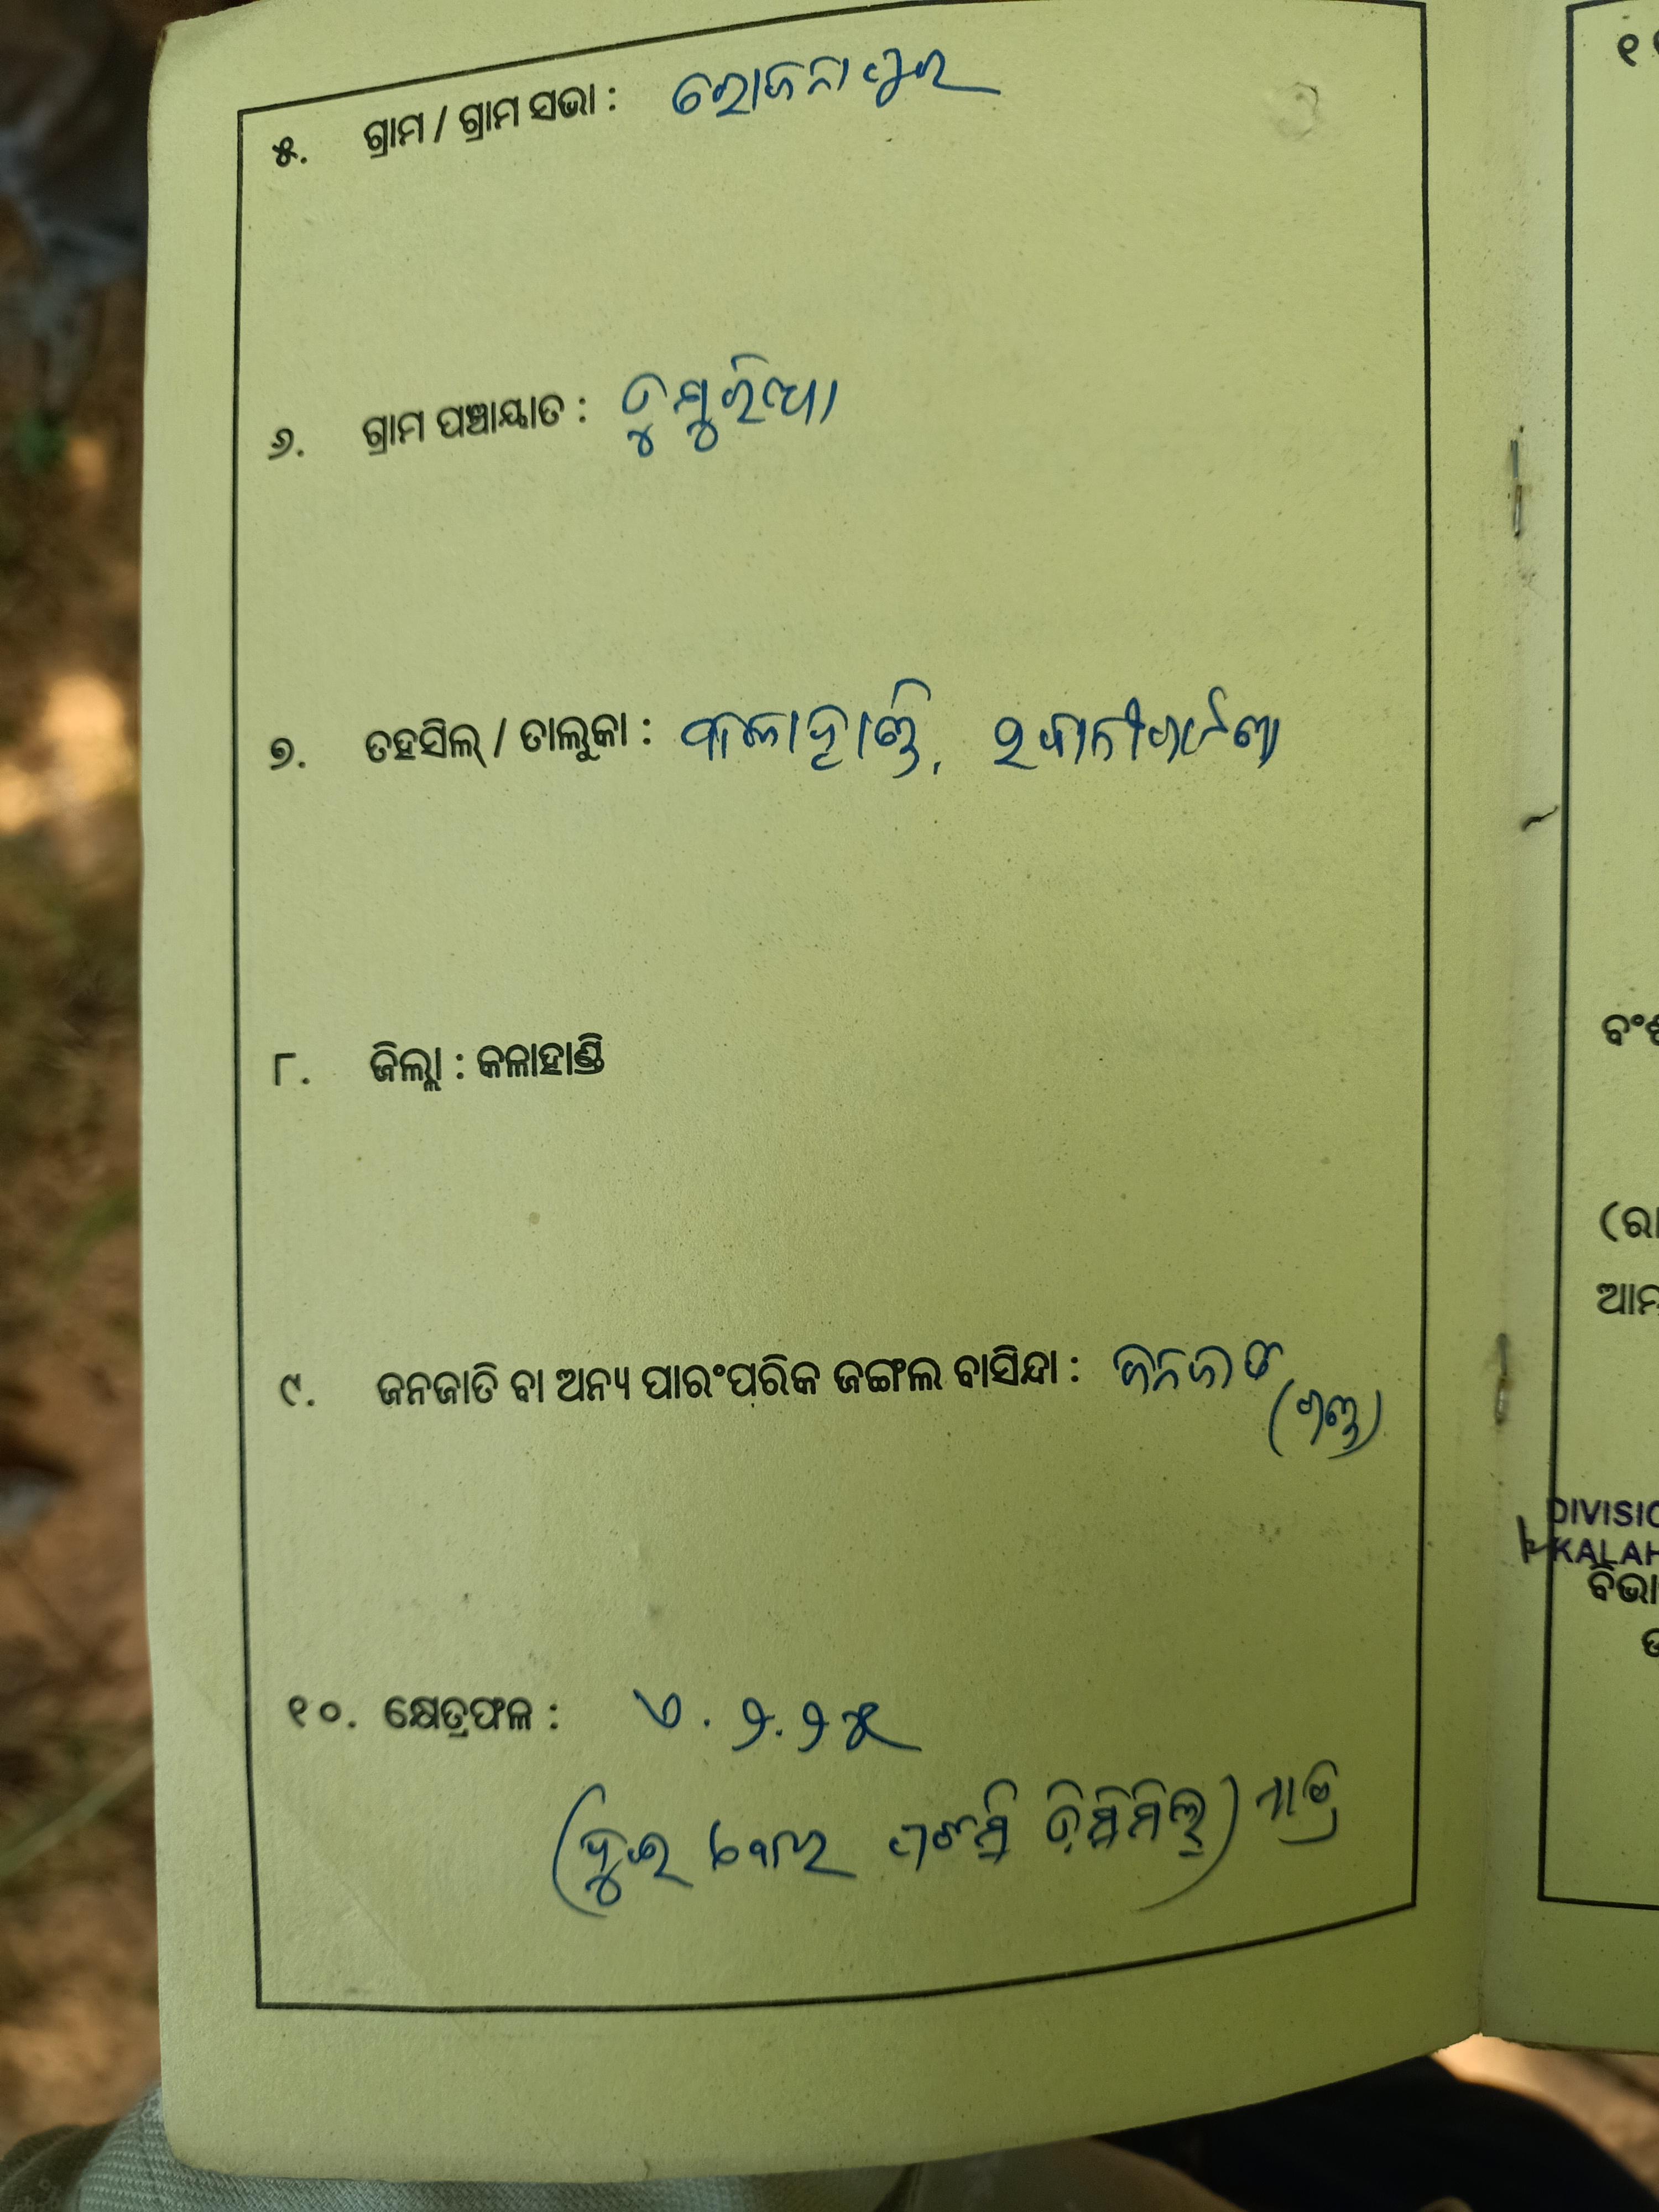 ୫. ଗ୍ରାମ / ଗ୍ରାମ ସଭା : ଭୋଜନାପୁର
୬. ଗ୍ରାମ ପଞ୍ଚାୟାତ : ଡୁମୁରିଆ
୭. ତହସିଲ୍ / ତାଲୁକା : କଳାହାଣ୍ଡି, ଭବାନୀପାଟଣା
୮. ଜିଲ୍ଲା : କଳାହାଣ୍ଡି
୯. ଜନଜାତି ବା ଅନ୍ୟ ପାରଂପରିକ ଜଙ୍ଗଲ ବାସିନ୍ଦା : ଜନଜାତି
୧୦. କ୍ଷେତ୍ରଫଳ : ଏ. ୨.୨୫
(ଦୁଇ ପଚିଶି ଡିସିମିଲ୍) ମାତ୍ର
୧୧
ବଂଶ
(ରା
ଆମ
DIVISIO
KALAH
ବିଭା